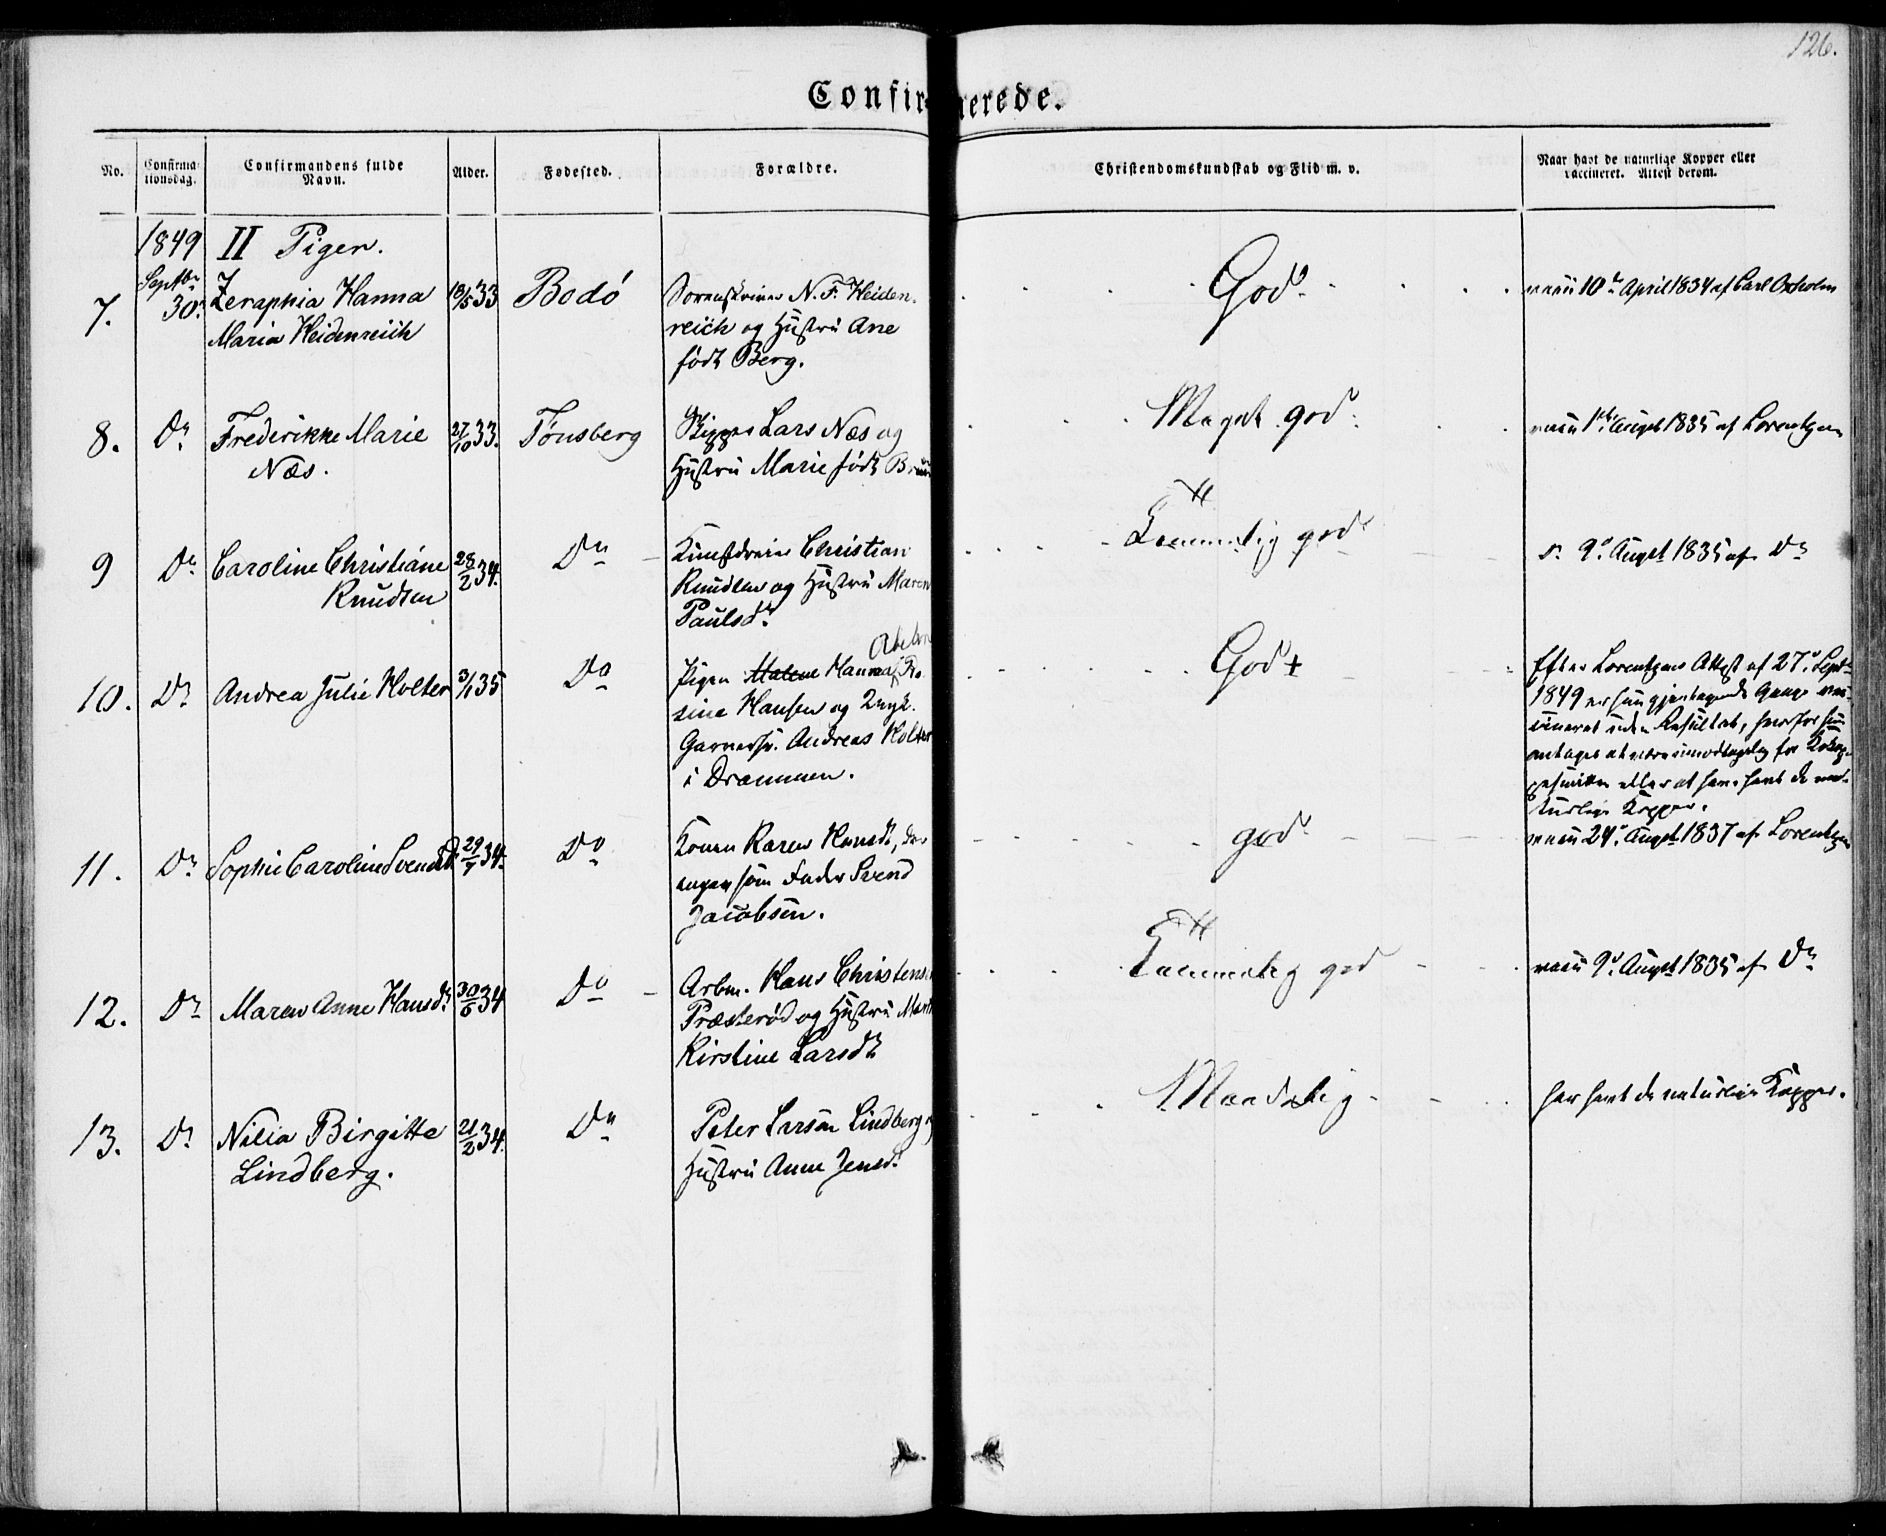 126.
Confirmerede.
No.
Confirmationsdag.
Confirmandens fulde Navn.
Alder.
Fødested.
Forældre.
Christendomskundskab og Flid m. v.
Naar havt de naturlige Kopper eller vaccineret. Attest derom.
1849 II Piger.
7. Septbr 30. Zeraphia Hanna 18/5 33 Bodö Sorenskriver N. F. Heiden- God vacc 10d April 1834 af Carl Oxholm
Maria Heidenreich reich og Hustru Ane
født Berg.
8. Do Frederikke Marie 27/10 33. Tønsberg Skipper Lars Næs og Meget god. vacc Augst 1835 af Lorentzen
Næs. Hustru Marie født
9 Do Caroline Christiane 28/2 34. Do Christian Temmelig god d. 9d Augst 1835 af Do
Knudsen Knudsen og Hustru Maren
Paulsd.
10. Do Andrea Julie Holter 3/1 35 Do Pigen Malene Hanna Ro- God+ Efter Lorentzens Attest af 27d Septr
sine Hansen og 1849 er hun gjentagende Gange vac-
Garversv. Andreas Holter cineret uden Resultat, hvorfor hun
i Drammen. antages at være uimodtagelig for
eller at have havt de na-
turlige Kopper.
11. Do Sophie Caroline Svendsd. 29/7 34. Do Konen Karen Hansd., god vacc 24d Augst 1837 af Lorentzen
som Fader Svend
Jacobsen.
12. Do Maren Anne Hansd. 30/5 34 Do Arbm. Hans Christensen Temmelig god vacc 9d Augst 1835 af Do
Præsterød og Hustru
Kirstine Larsd.
13. Do Nilia Birgitte 21/2 34. Do Peter Larsen Lindberg og Maadelig har havt de naturlige Kopper.
Lindberg. Hustru Anne Jensd.